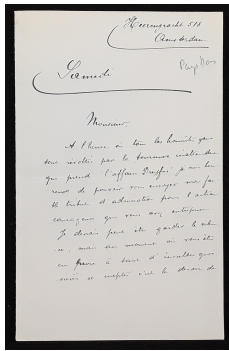 Heerengracht 518
Amsterdam
Pays Bas
Samedi
Monsieur,
A l'heure où tous les honnêtes gens
sont révoltés par la tournure inattendue
que prend l'affaire Dreyfus je
de pouvoir vous envoyer ma
tribut d'admiration pour l'action
courageuse que vous avez entreprise.
Je devrais peut être garder le
mais au moment où vous êtes
en à tant d'insultes que
c'est le devoir de